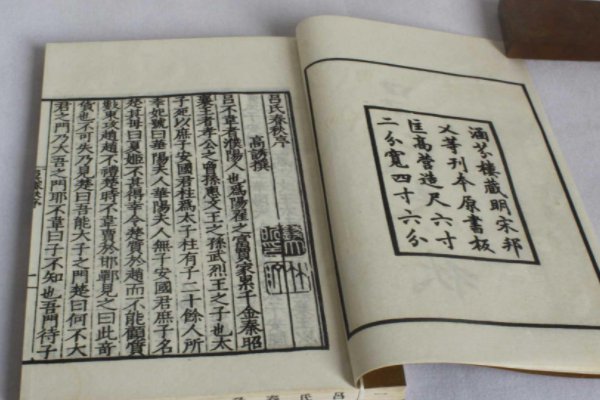 涵芬樓藏明宋邦
乂等刊本原書板
匡高營造尺六寸
二分寬四寸六分
呂氏春秋序
高誘撰
呂不韋者濮陽人也爲陽翟之富賈家累千金秦昭
襄王者孝公之曾孫惠文王之孫武烈王之子也太
子死以庶子安國君柱爲太子柱有子二十餘人所
幸姬號曰華陽夫人華陽夫人無子安國君庶子名
楚其母曰夏姬不甚得幸令楚質於趙而不能顧質
數東攻趙趙不禮楚時不韋賈於邯鄲見之曰此奇
貨也不可失乃見楚曰吾能大子之門楚曰何不大
君之門乃大吾之門耶不韋曰子不知也吾門待子